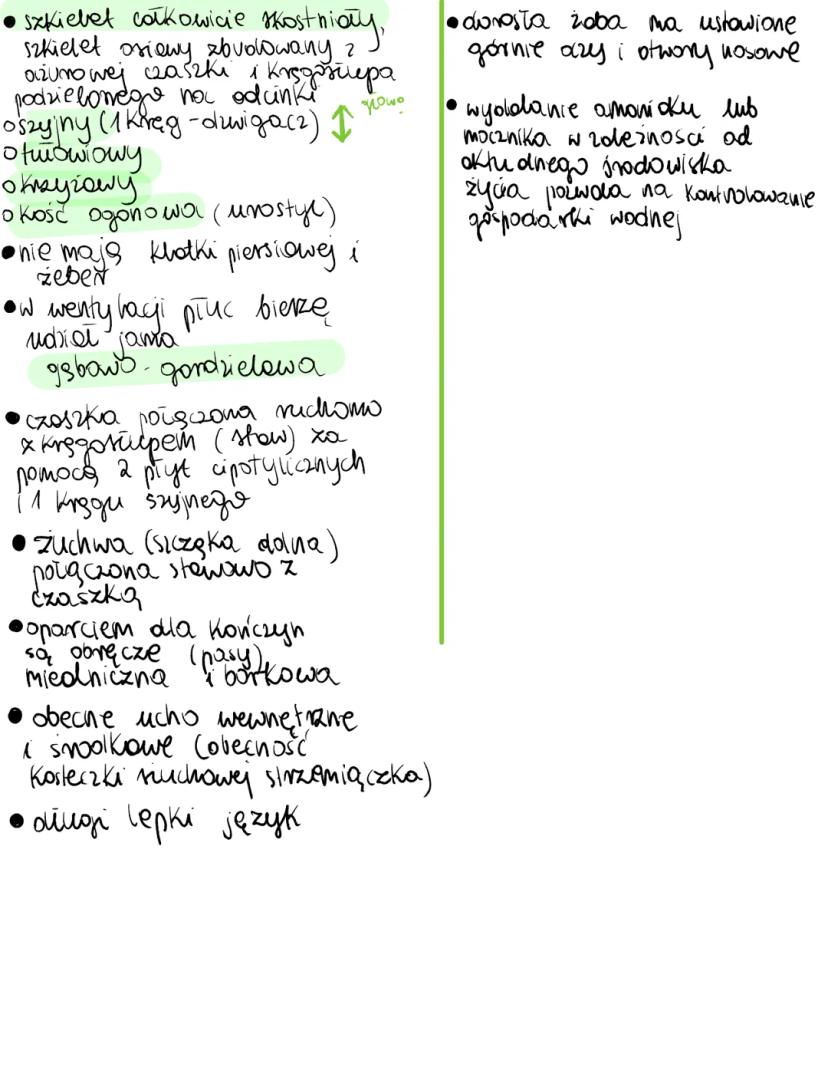 • szkielet całkowicie skostniały,
szkielet osiowy zbudowany z
ażurowej czaszki i kręgosłupa
podzielonego na odcinki
○ szyjny (1 kręg - dźwigacz) ↕ głową
○ tułowiowy
○ krzyżowy
○ kość ogonowa (urostyl)
• nie mają klatki piersiowej i
żeber
• w wentylacji płuc bierze
udział jama
gębowo - gardzielowa
• czaszka połączona ruchomo
z kręgosłupem (staw) za
pomocą 2 płyt cipotylicznych
i 1 kręgu szyjnego
• żuchwa (szczęka dolna)
połączona stawowo z
czaszką
• oparciem dla kończyn
są obręcze (pasy)
miedniczna i barkowa
• obecne ucho wewnętrzne
i środkowe (obecność
kosteczki słuchowej strzemiączka)
• długi lepki język
• dorosła żaba ma ustawione
górnie oczy i otwory nosowe
• wydalanie amoniaku lub
mocznika w zależności od
aktualnego środowiska
życia pozwala na kontrolowanie
gospodarki wodnej